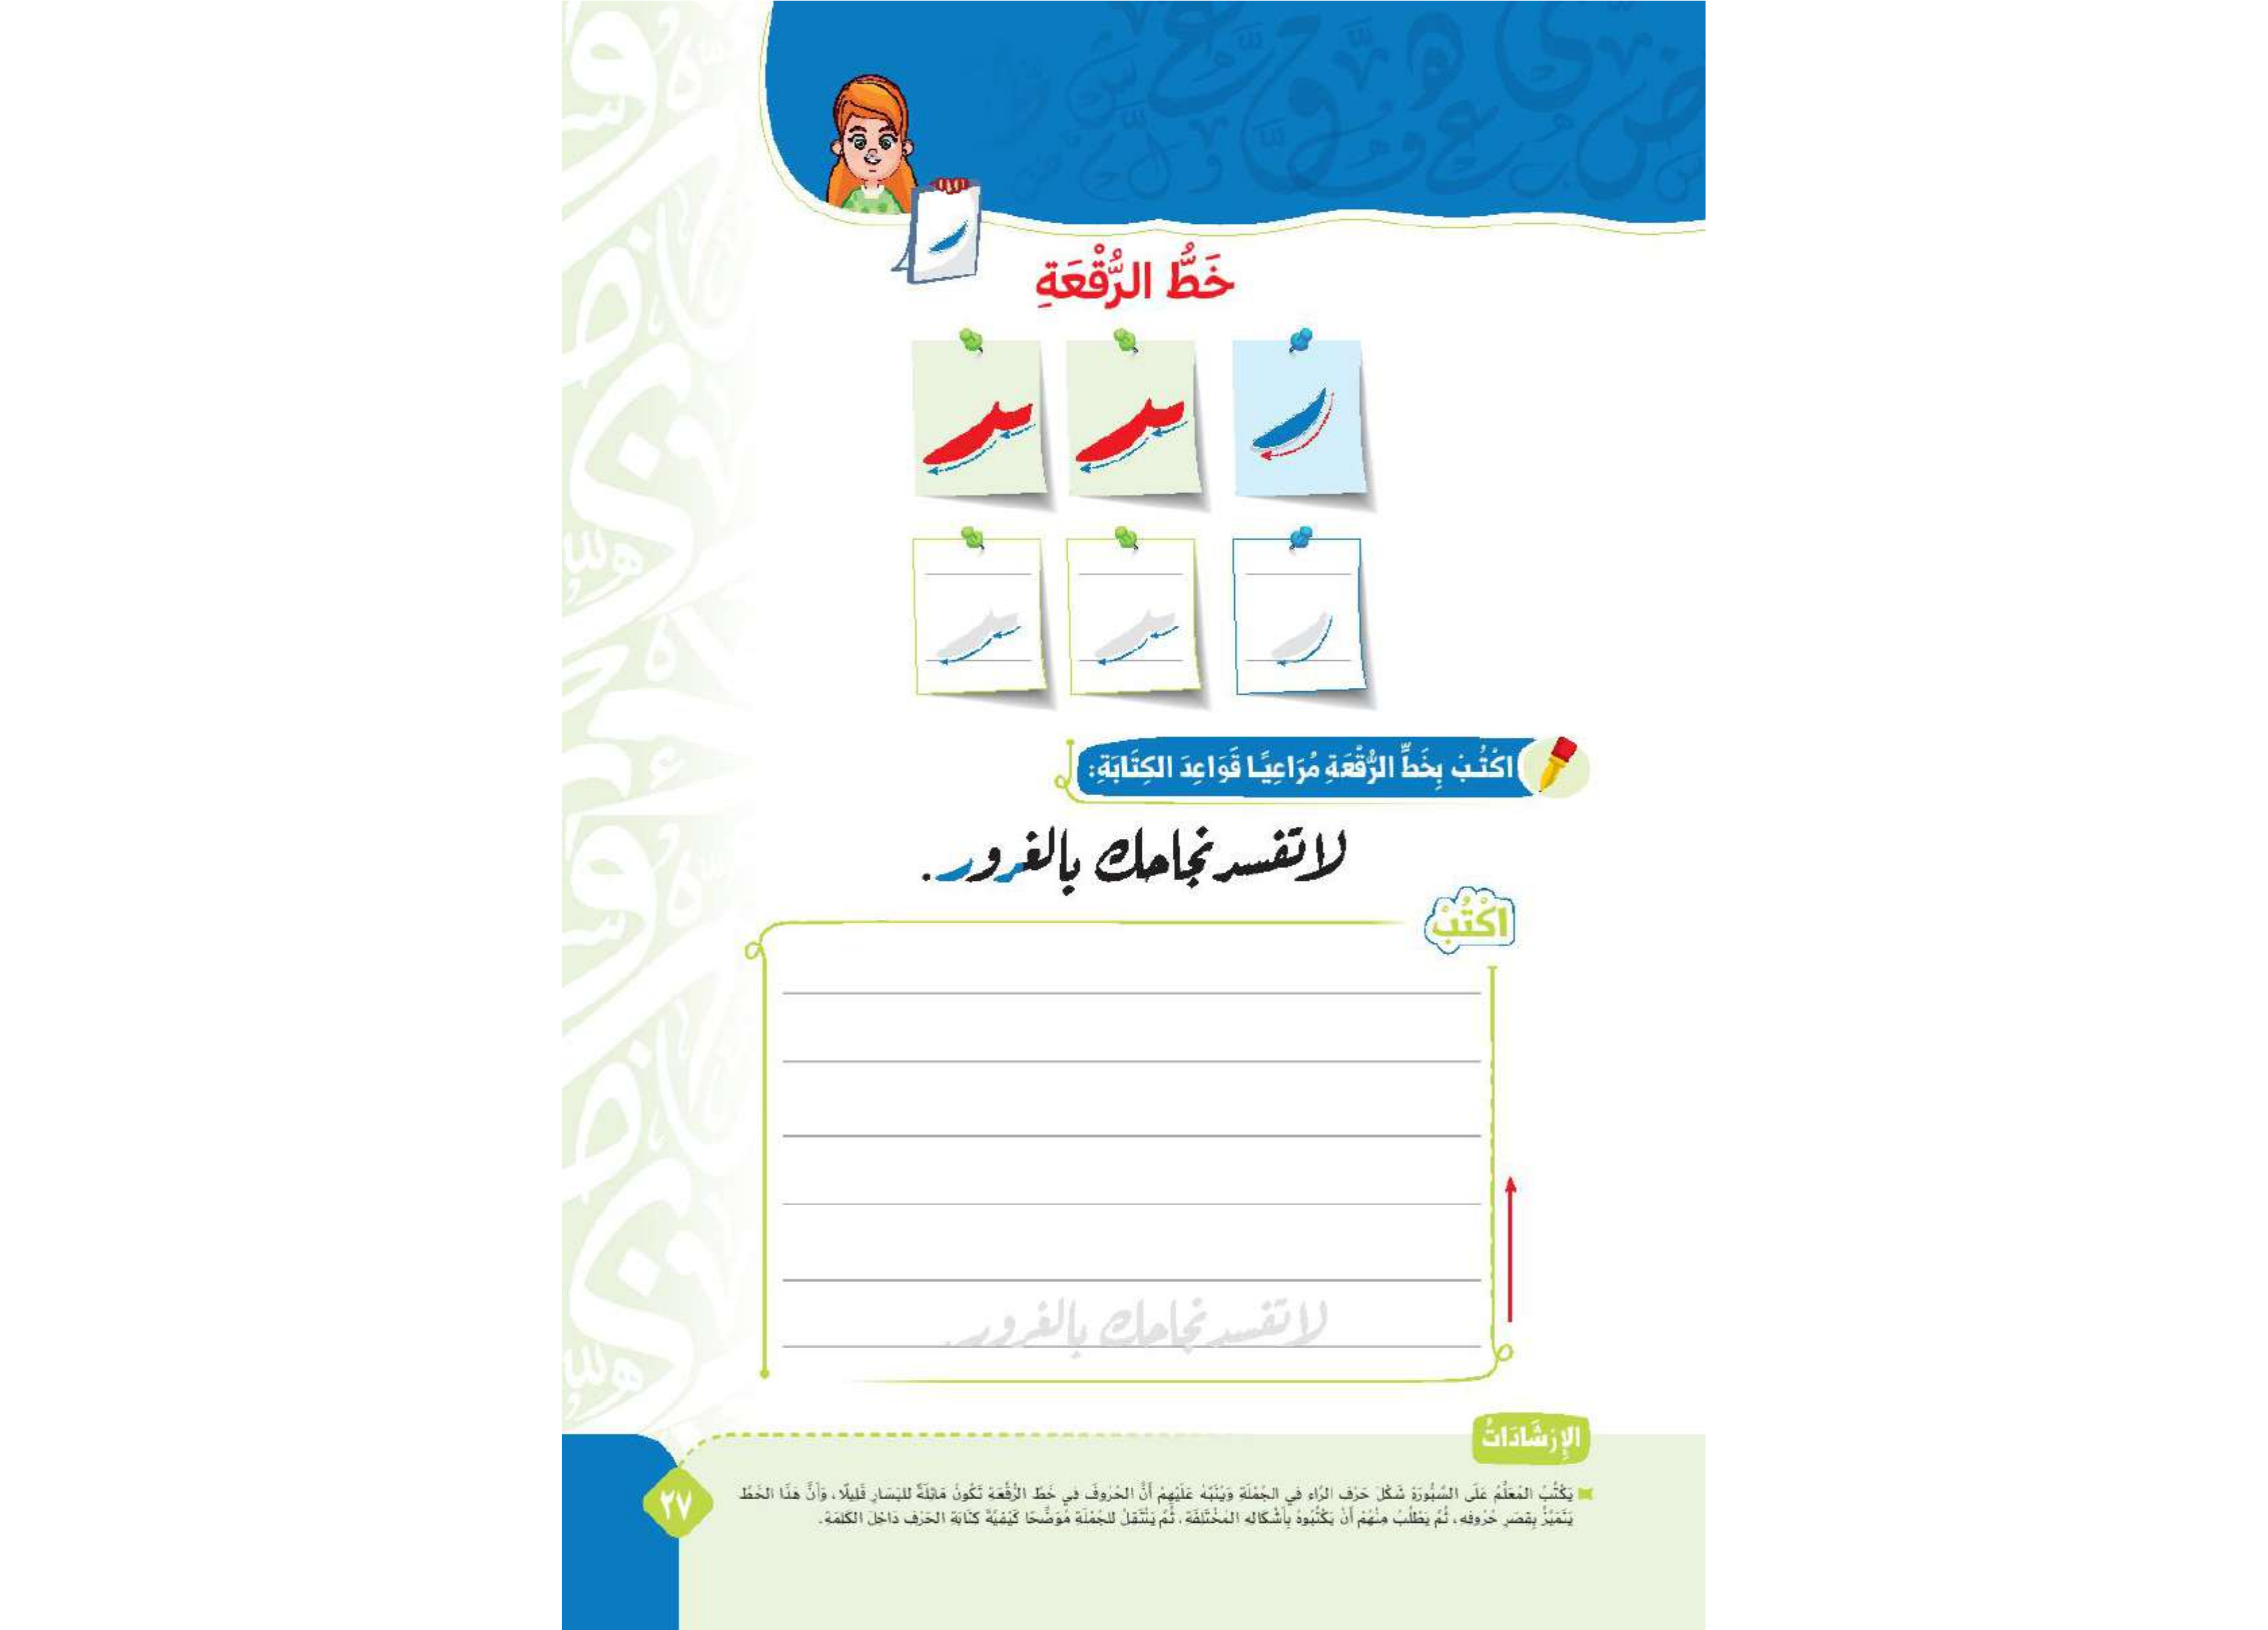 خَطُّ الرُّقْعَةِ
ر سر سر
ر سر سر
اكْتُبْ بِخَطِّ الرُّقْعَةِ مُرَاعِيًا قَوَاعِدَ الكِتَابَةِ:
لا تفسد نجاحك بالغرور.
اكْتُبْ
لا تفسد نجاحك بالغرور.
الإِرْشَادَاتُ
يَكْتُبُ المُعَلِّمُ عَلَى السَّبُّورَةِ شَكْلَ حَرْفِ الرَّاءِ فِي الجُمْلَةِ وَيُنَبِّهُ عَلَيْهِمْ أَنَّ الحُرُوفَ فِي خَطِّ الرُّقْعَةِ تَكُونُ مَائِلَةً لليَسَارِ قَلِيلًا، وَأَنَّ هَذَا الخَطَّ
يَتَمَيَّزُ بِقِصَرِ حُرُوفِهِ، ثُمَّ يَطْلُبُ مِنْهُمْ أَنْ يَكْتُبُوهُ بِأَشْكَالِهِ المُخْتَلِفَةِ، ثُمَّ يَنْتَقِلُ للجُمْلَةِ مُوَضِّحًا كَيْفِيَّةَ كِتَابَةِ الحَرْفِ دَاخِلَ الكَلِمَةِ.
٢٧